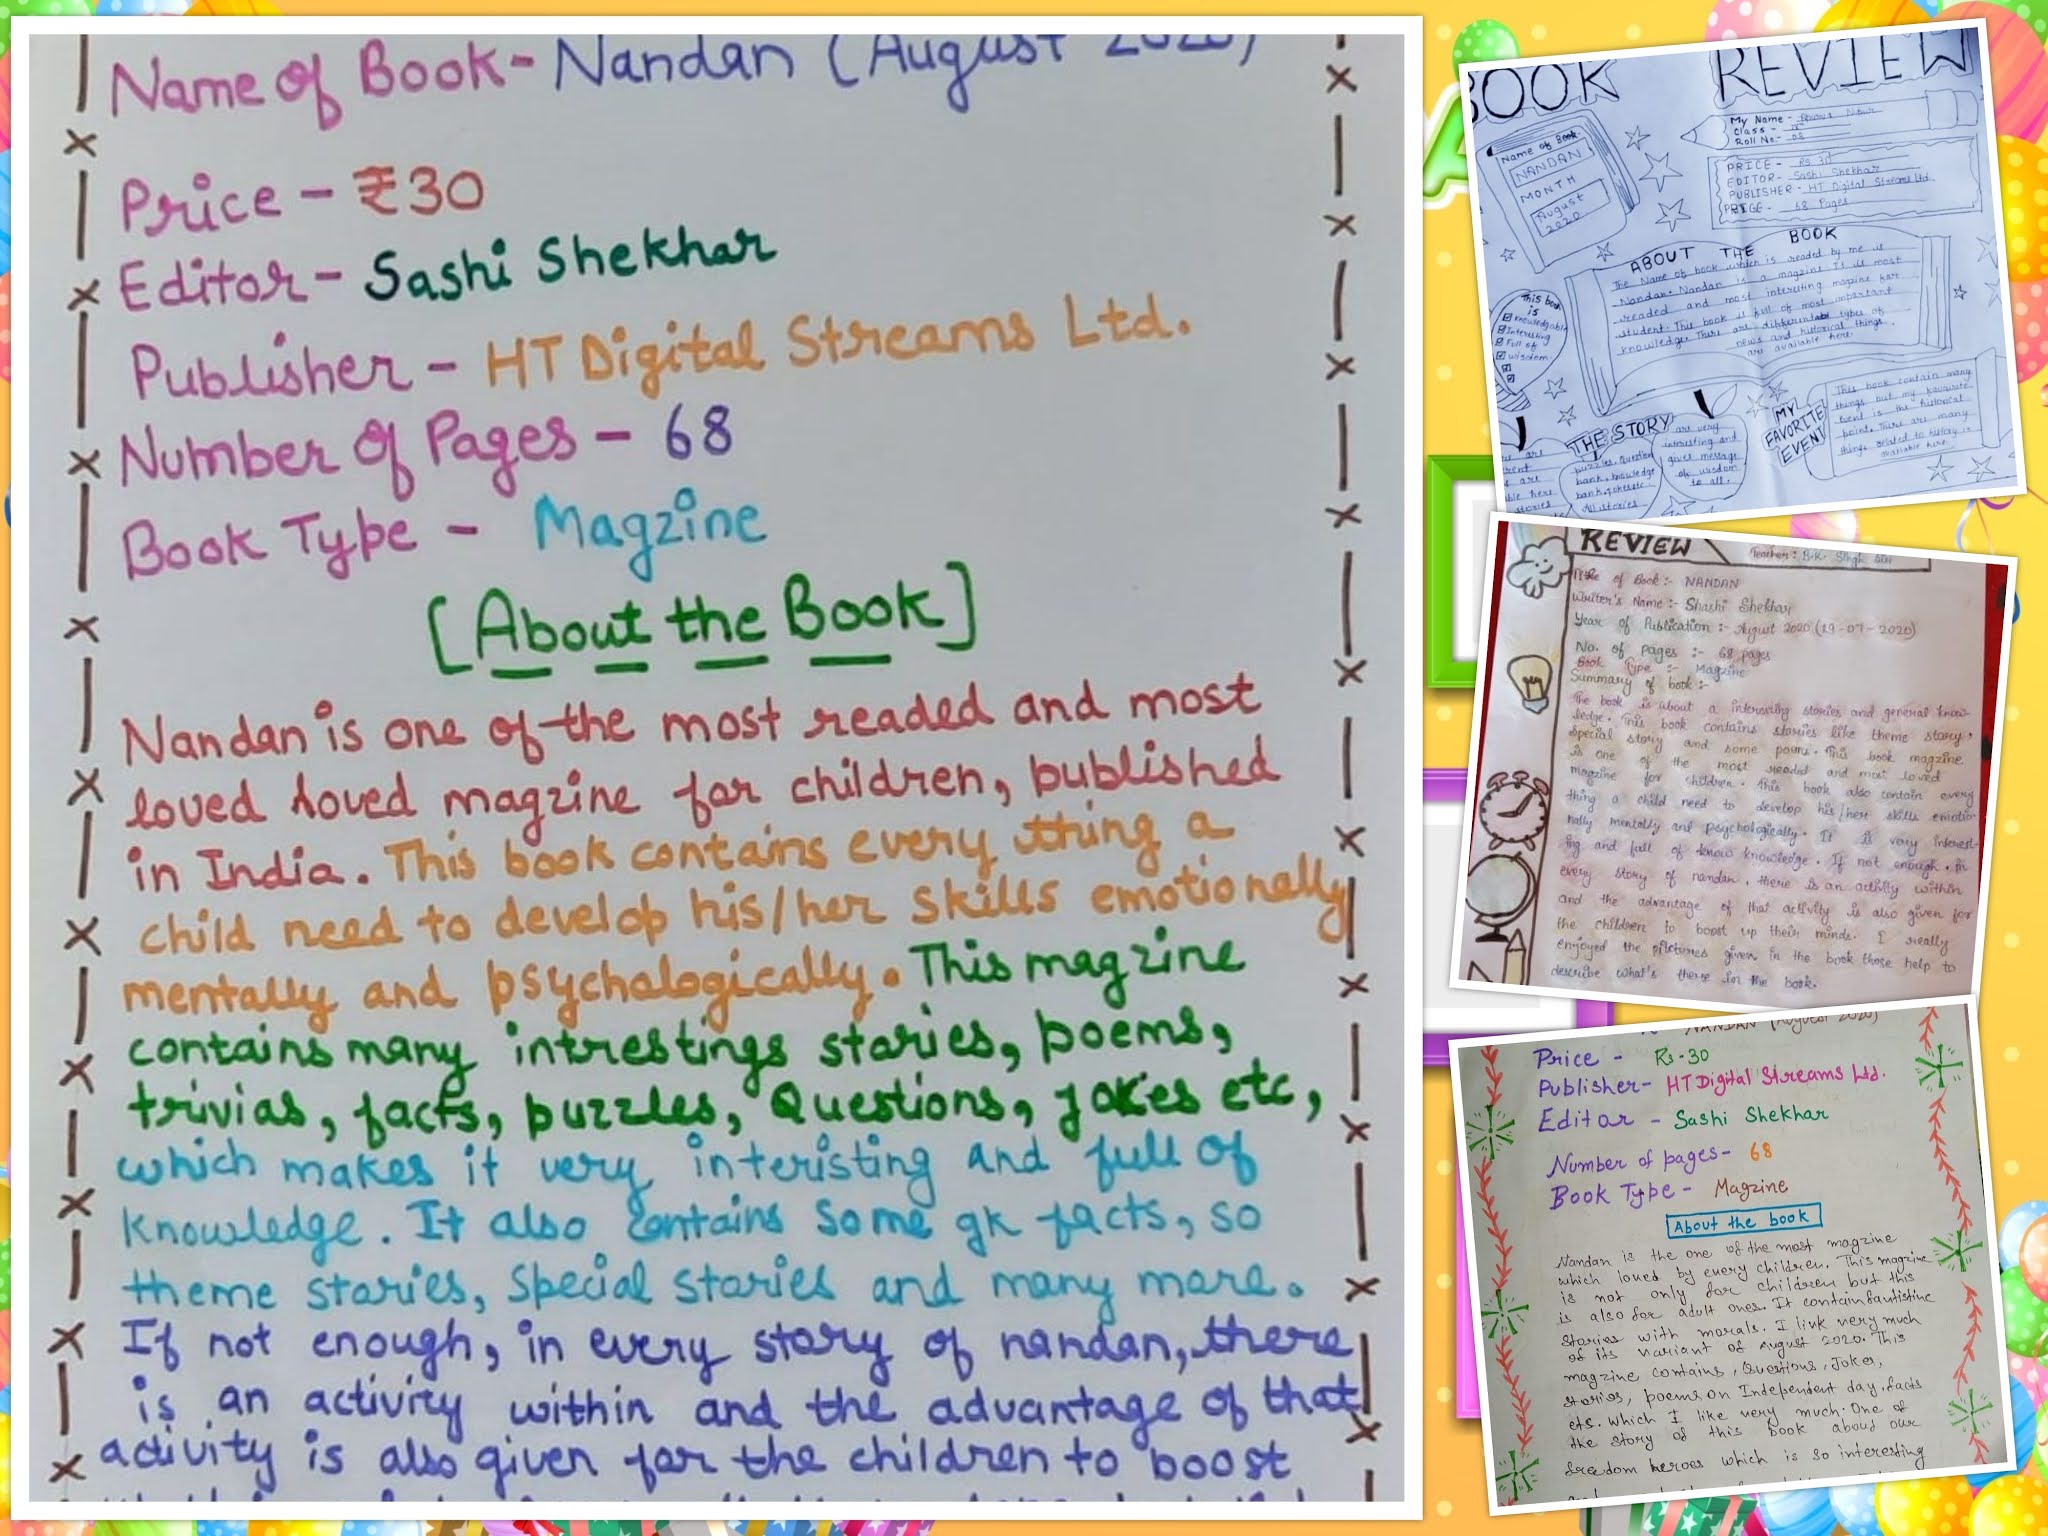 Name of Book- Nandan (August 2020)
Price - ₹30
Editor- Sashi Shekhar
Publisher - HT Digital Streams Ltd.
Number of Pages - 68
Book Type - Magzine
[About the Book]
Nandan is one of the most readed and most
loved loved magzine for children, published
in India. This book contains every thing a
child need to develop his/her skills emotionally
mentally and psychologically. This magzine
contains many intrestings stories, poems,
trivias, facts, puzzles, Questions, jokes etc,
which makes it very interisting and full of
knowledge. It also contains some gk facts, so
theme stories, special stories and many more.
If not enough, in every story of nandan, there
is an activity within and the advantage of that
activity is also given for the children to boost
BOOK REVIEW
My Name -
Class -
Roll No. - 08
Name of Book
NANDAN
MONTH
August
2020
PRICE - Rs 30
EDITOR- Sashi Shekhar
PUBLISHER - HT Digital Streams Ltd.
68 Pages
ABOUT THE BOOK
The Name of book which is readed by me is
Nandan. Nandan is a magzine. It is most
readed and most interesting magzine for
student. This book is full of most important
knowledge. There are types of
news and historical things
are available here.
This book
is
Knowledgable
Interesting
Full of
wisdom
THE STORY
puzzles, Question
bank, knowledge
bank, jokes etc.
All stories
are very
interesting and
gives message
of wisdom
to all.
MY
FAVORITE
EVENT
This book contain many
things but my favourite
event is the historical
point. There are many
things related to history is
available here.
REVIEW
Teacher: B.K. Singh Sir
Title of Book:- NANDAN
Writer's Name:- Shashi Shekhar
Year of Publication:- August 2020 (29-07-2020)
No. of pages:- 68 pages
Book Type:- Magzine
Summary of book:-
The book is about a intersting stories and general know-
ledge. This book contains stories like theme story,
special story and some poem. This book magzine
is one of the most readed and most loved
magzine for children. This book also contain every
thing a child need to develop his/her skills emotio-
nally mentally and psychologically. It is very interest-
ing and full of know knowledge. If not enough, in
every story of nandan, there is an activity within
and the advantage of that activity is also given for
the children to boost up their minds. I really
enjoyed the pictures given in the book those help to
describe what's there in the book.
NANDAN (August 2020)
Price - Rs-30
Publisher- HT Digital Streams Ltd.
Editor - Sashi Shekhar
Number of pages- 68
Book Type - Magzine
About the book
Nandan is the one of the most magzine
which loved by every children. This magzine
is not only for children but this
is also for adult ones. It contain fantistine
stories with morals. I link very much
of its variant of August 2020. This
magzine contains, Questions, Jokes,
stories, poems on Independent day, facts
ets. Which I like very much. One of
the story of this book about our
freedom heroes which is so interesting